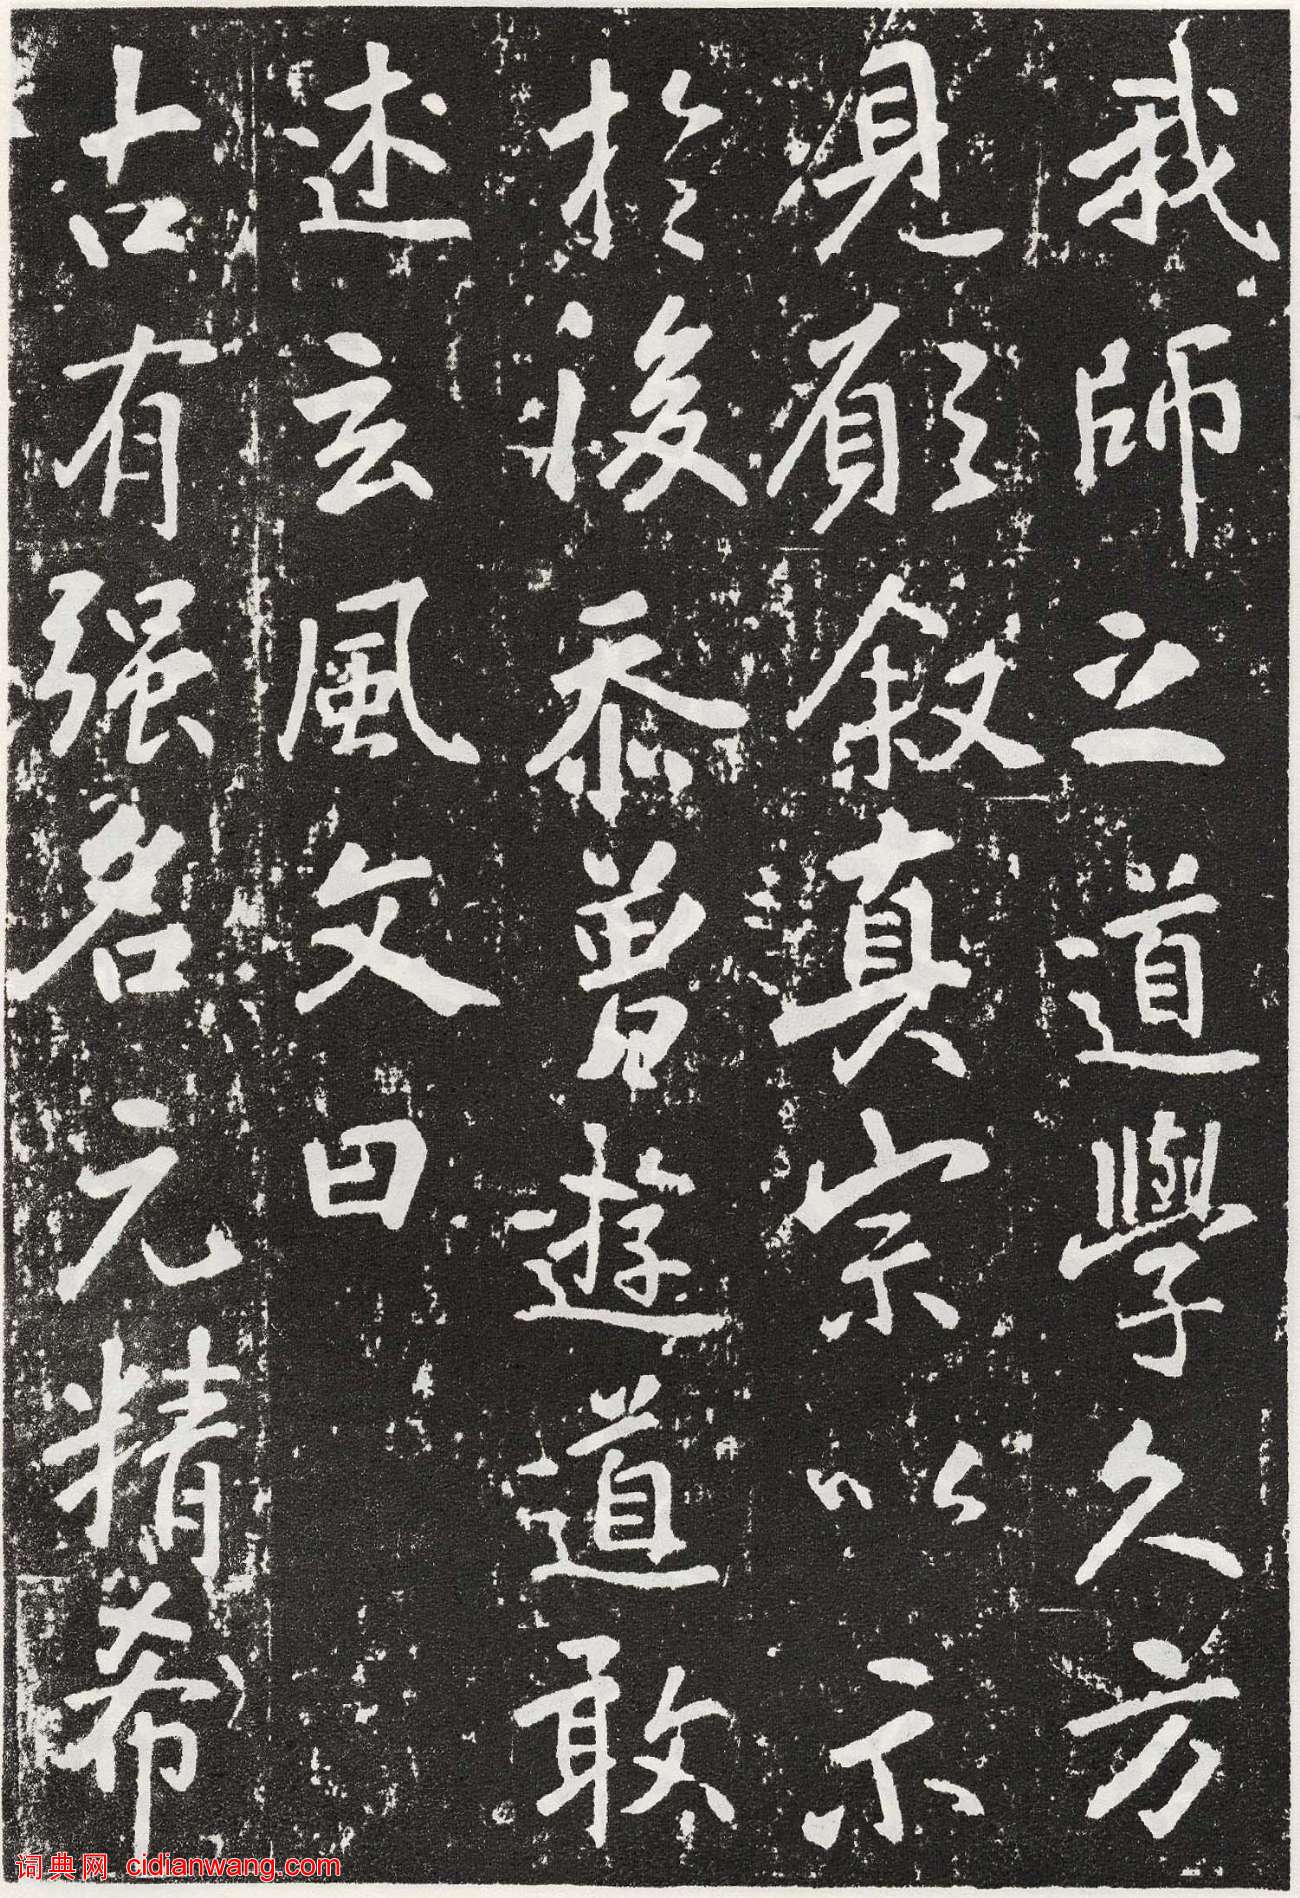 我師之道學久方
見願叙真宗以示
於後忝曾遊道敢
述玄風文曰
古有强名元精希
词典网 cidianwang.com